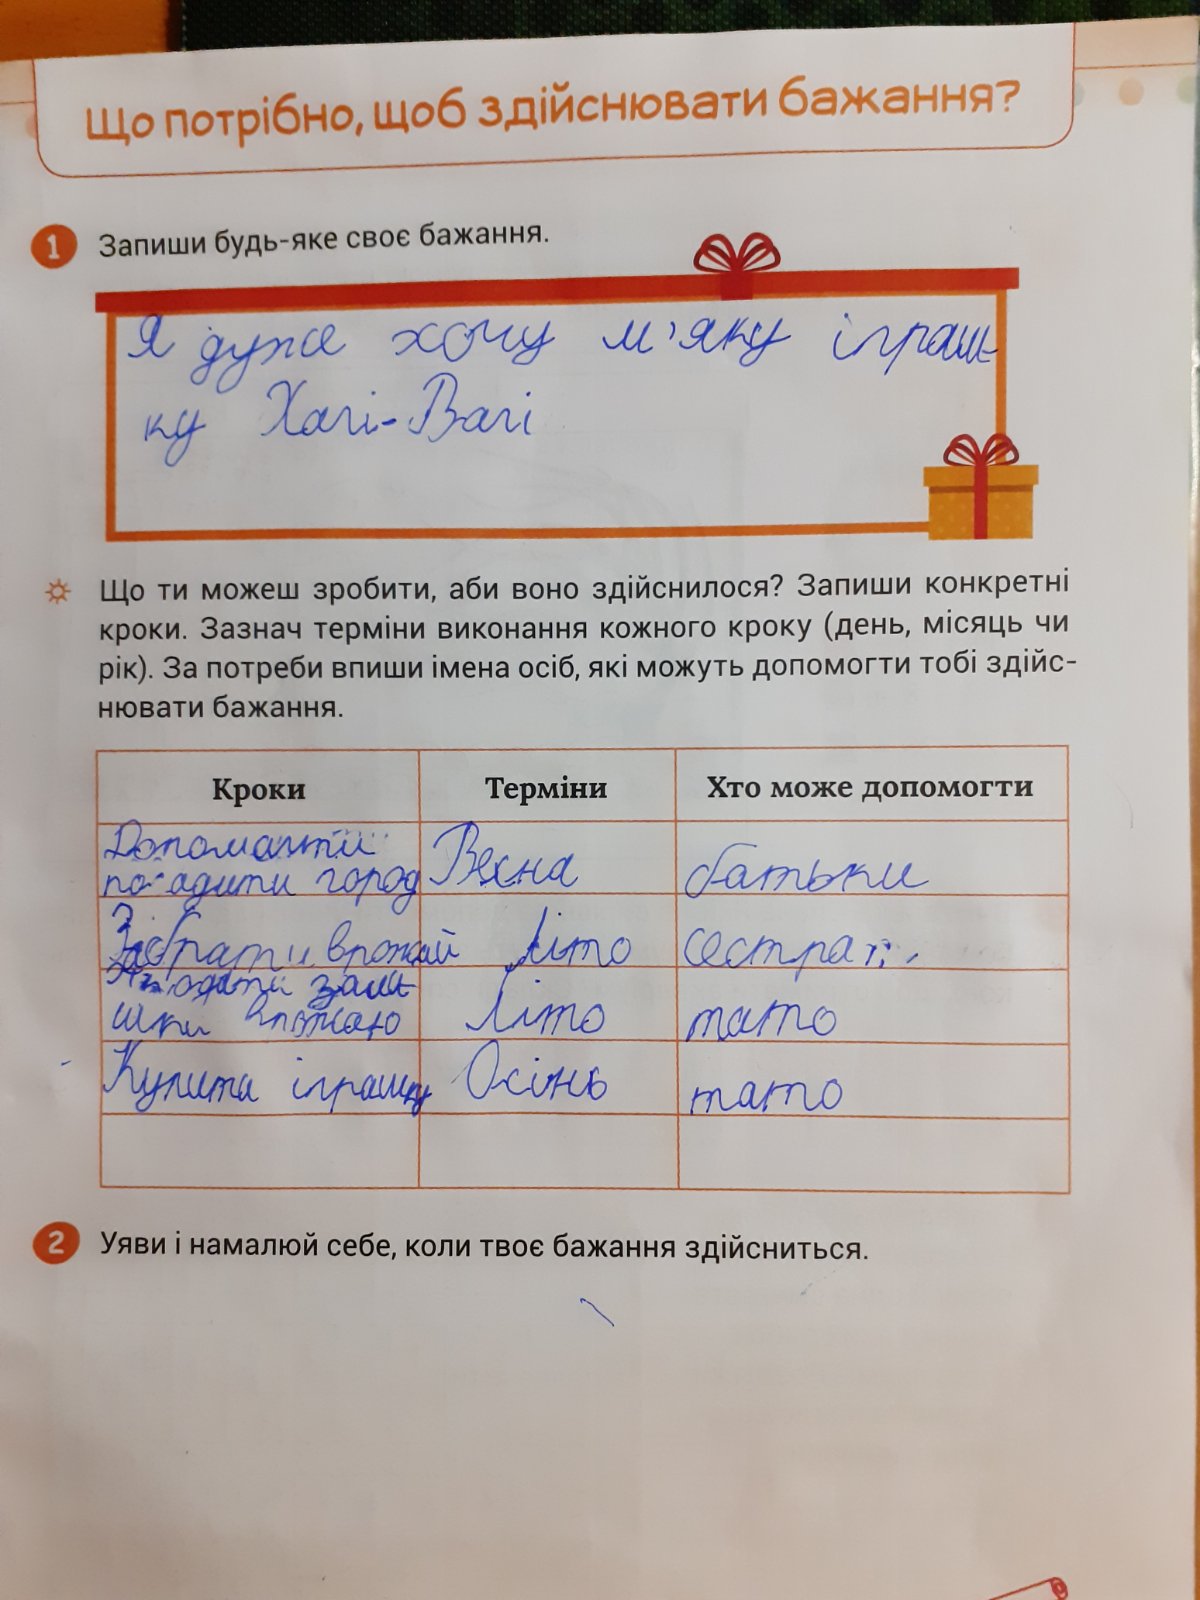 Що потрібно, щоб здійснювати бажання?
1 Запиши будь-яке своє бажання.
Я дуже хочу м'яку іграш-
ку Хагі-Вагі
Що ти можеш зробити, аби воно здійснилося? Запиши конкретні
кроки. Зазнач терміни виконання кожного кроку (день, місяць чи
рік). За потреби впиши імена осіб, які можуть допомогти тобі здійс-
нювати бажання.
Кроки Терміни Хто може допомогти
Допомогти
посадити город Весна батьки
Зібрати врожай літо сестра
зали-
шки врожаю літо тато
Купити іграшку Осінь тато
2 Уяви і намалюй себе, коли твоє бажання здійсниться.